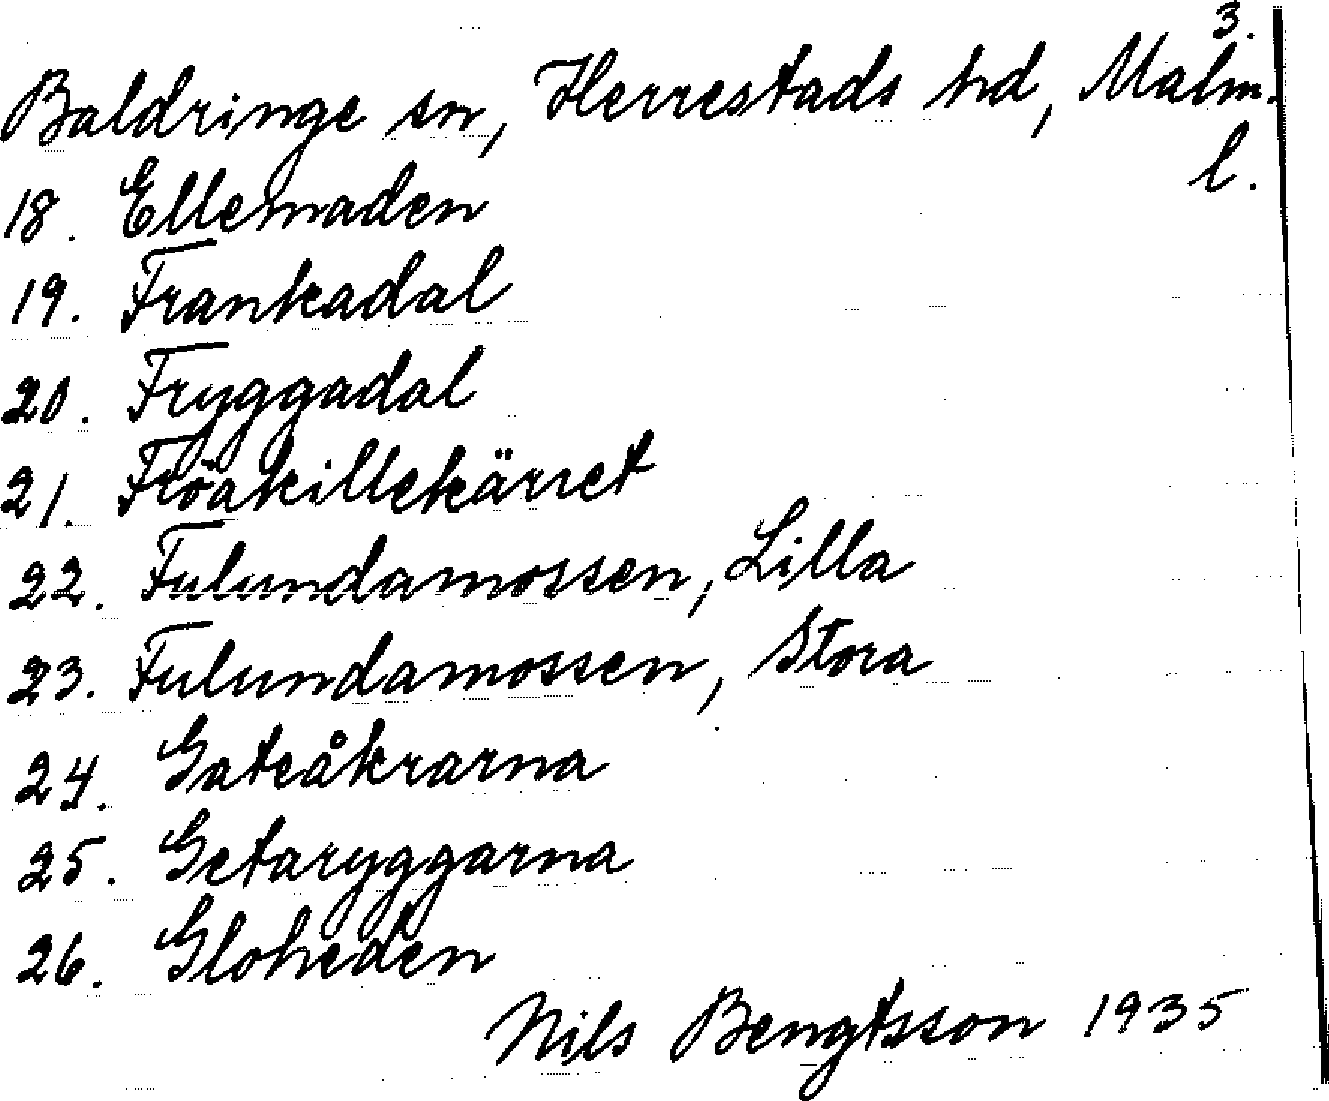 3.
Baldringe sn, Herrestads hd, Malm.
l.
18. Ellemaden
19. Frankadal
20. Fryggadal
21. Fröakillekärret
22. Fulundamossen, Lilla
23. Fulundamossen, Stora
24. Gateåkrarna
25. Getaryggarna
26. Gloheden
Nils Bengtsson 1935